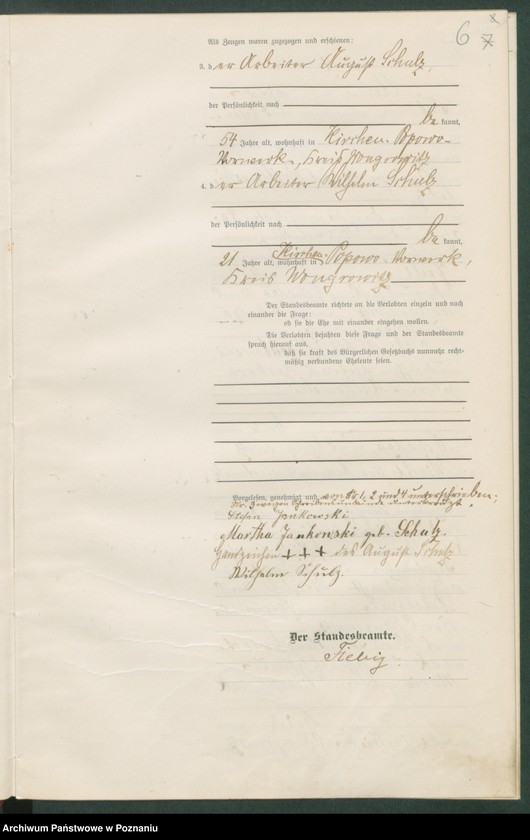 6 7
Als Zeugen waren zugezogen und erschienen:
3. der Arbeiter August Schulz,
der Persönlichkeit nach
be kannt,
54 Jahre alt, wohnhaft in Kirchen-Popowo-
Vorwerk, Kreis Wongrowitz
4. der Arbeiter Wilhelm Schulz
der Persönlichkeit nach
be kannt,
21 Jahre alt, wohnhaft in Kirchen-Popowo-Vorwerk,
Kreis Wongrowitz
Der Standesbeamte richtete an die Verlobten einzeln und nach
einander die Frage:
ob sie die Ehe mit einander eingehen wollen.
Die Verlobten bejahten diese Frage und der Standesbeamte
sprach hierauf aus,
daß sie kraft des Bürgerlichen Gesetzbuchs nunmehr recht-
mäßig verbundene Eheleute seien.
Vorgelesen, genehmigt und von Nr. 1, 2 und 4 unterschrieben;
Nr. 3 wegen Schreibensunkunde unterkreuzt.
Stefan Jankowski
Martha Jankowski geb. Schulz.
Handzeichen +++ des August Schulz
Wilhelm Schulz.
Der Standesbeamte.
Fiebig
Archiwum Państwowe w Poznaniu